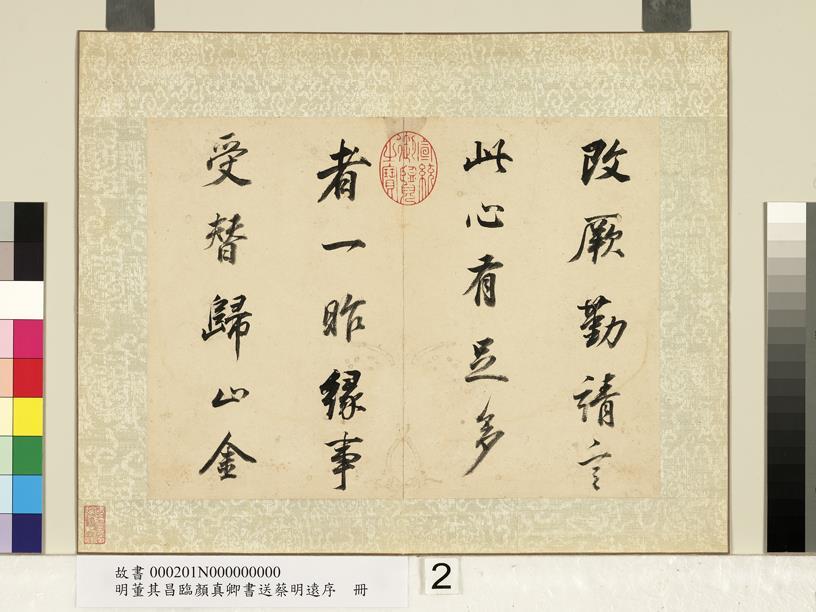 改厥勤請言
此心有足多
者一昨緣事
受替歸止金
宣統御覽之寶
故書 000201N000000000
明董其昌臨顏真卿書送蔡明遠序　冊
2